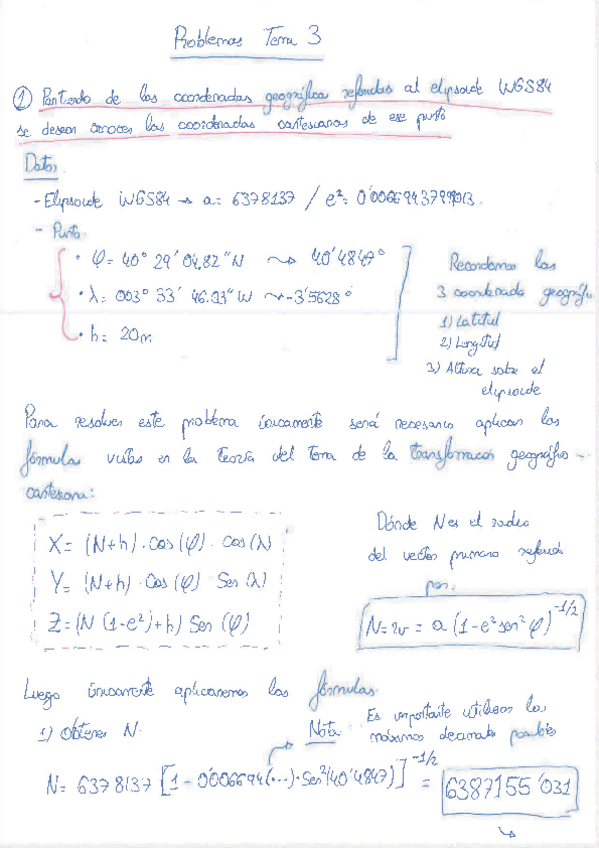 Problemas Tema 3
① Partiendo de las coordenadas geográficas referidas al elipsoide WGS84
se desean conocer las coordenadas cartesianas de ese punto
Datos
- Elipsoide WGS84 → a= 6378137 / e²= 0'00669437999013.
- Punto:
• φ= 40° 29' 04.82" N ⇝ 40'4847°
• λ= 003° 33' 46.03" W ⇝ -3'5628°
• h= 20m
Recordamos las
3 coordenadas geográficas
1) Latitud
2) Longitud
3) Altura sobre el
elipsoide
Para resolver este problema únicamente será necesario aplicar las
fórmulas vistas en la Teoría del Tema de la transformación geográfico -
cartesiana:
X= (N+h) · Cos (φ) · Cos (λ)
Y= (N+h) · Cos (φ) Sen (λ)
Z= (N (1-e²)+h) Sen (φ)
Dónde N es el radio
del vector primario referido
por:
N=2v = a (1-e² sen² φ)^-1/2
Luego únicamente aplicaremos las fórmulas
1) Obtener N.
Nota: Es importante utilizar los
máximos decimales posibles
N= 6378137 [1 - 0'006694(...)·Sen²(40'4847)]^-1/2 = 6387155'031